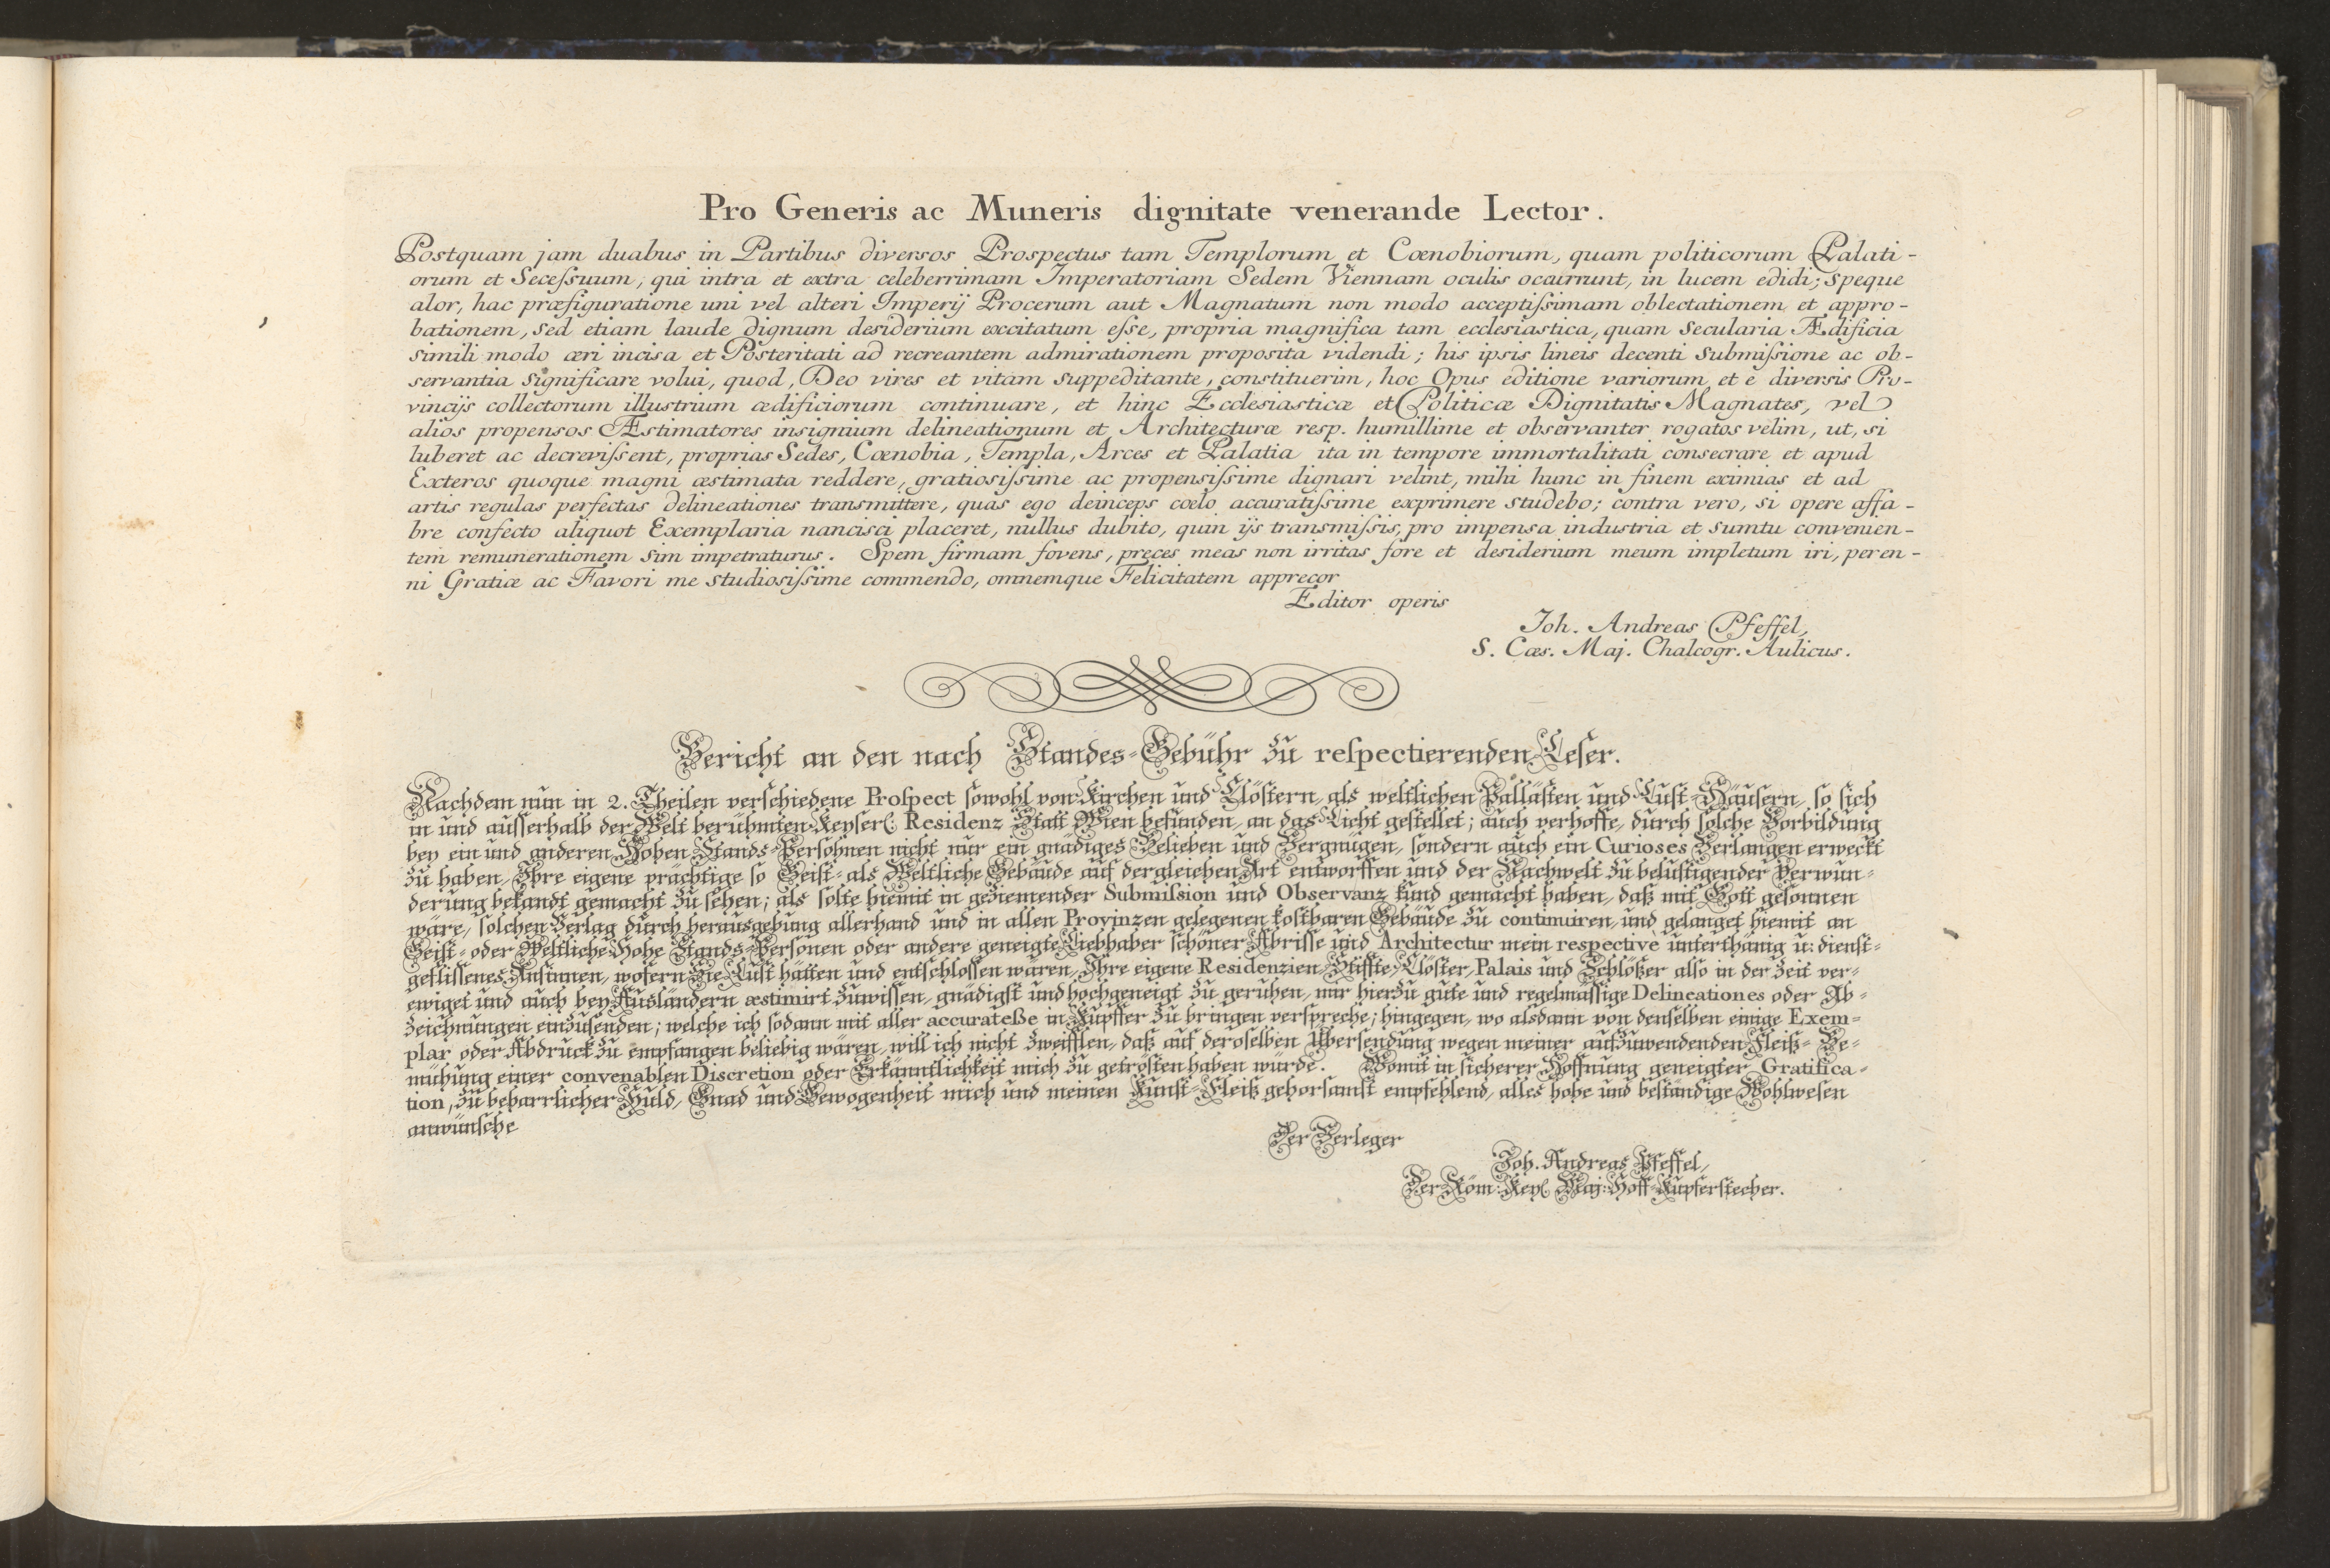 Pro Generis ac Muneris dignitate venerande Lector.
Postquam jam duabus in Partibus diversos Prospectus tam Templorum et Cœnobiorum, quam politicorum Palati-
orum et Seceſsuum, qui intra et extra celeberrimam Imperatoriam Sedem Viennam oculis ocurrunt, in lucem edidi; speque
alor, hac præfiguratione uni vel alteri Imperij Procerum aut Magnatum non modo acceptiſsimam oblectationem et appro-
bationem, sed etiam laude dignum desiderium excitatum eſse, propria magnifica tam ecclesiastica, quam secularia Ædificia
simili modo æri incisa et Posteritati ad recreantem admirationem proposita videndi; his ipsis lineis decenti submiſsione ac ob-
servantia significare volui, quod, Deo vires et vitam suppeditante, constituerim, hoc Opus editione variorum et e diversis Pro-
vincijs collectorum illustrium ædificiorum continuare, et hinc Ecclesiasticæ et Politicæ Dignitatis Magnates, vel
alios propensos Æstimatores insignium delineationum et Architecturæ resp. humillime et observanter rogatos velim, ut, si
luberet ac decreviſsent, proprias Sedes, Cœnobia, Templa, Arces et Palatia ita in tempore immortalitati consecrare et apud
Exteros quoque magni æstimata reddere, gratiosiſsime ac propensiſsime dignari velint, mihi hunc in finem eximias et ad
artis regulas perfectas delineationes transmittere, quas ego deinceps cœlo accuratiſsime exprimere studebo; contra vero, si opere affa-
bre confecto aliquot Exemplaria nancisci placeret, nullus dubito, quin ijs transmiſsis, pro impensa industria et sumtu convenien-
tem remunerationem sim impetraturus. Spem firmam fovens, preces meas non irritas fore et desiderium meum impletum iri, peren-
ni Gratiæ ac Favori me studiosiſsime commendo, omnemque Felicitatem apprecor
Editor operis
Joh. Andreas Pfeffel,
S. Cæs. Maj. Chalcogr. Aulicus.
Bericht an den nach Standes-Gebühr zu reſpectierenden Leſer.
Nachdem nun in 2. Theilen verſchiedene Proſpect ſowohl von Kirchen und Clöſtern, als weltlichen Palläſten und Luſt-Häuſern, ſo ſich
in und auſſerhalb der Welt berühmten Keyſerl: Residenz Statt Wien befinden, an das Licht geſtellet; auch verhoffe, durch ſolche Vorbildung
bey ein und anderen Hohen Stands-Perſohnen nicht nur ein gnädiges Belieben und Vergnügen, ſondern auch ein Curioses Verlangen erweckt
zu haben, Ihre eigene prächtige ſo Geiſt- als Weltliche Gebäude auf dergleichen Art entworffen und der Nachwelt zu beluſtigender Verwun-
derung bekandt gemacht zu ſehen; als ſolte hiemit in geziemender Submiſsion und Observanz kund gemacht haben, daß mit Gott geſonnen
wäre, ſolchen Verlag durch herausgebung allerhand und in allen Provinzen gelegenen koſtbaren Gebäude zu continuiren, und gelanget hiemit an
Geiſt- oder Weltliche Hohe Stands-Perſonen oder andere geneigte Liebhaber ſchöner Abriſſe und Architectur mein respectivè unterthänig u: dienſt-
gefliſſenes Anſinnen, wofern Sie Luſt hätten und entſchloſſen wären, Ihre eigene Residenzien, Stiffte, Clöſter, Palais und Schlößer alſo in der Zeit ver-
ewiget und auch bey Ausländern æstimirt zuwiſſen, gnädigſt und hochgeneigt zu geruhen, mir hierzu gute und regelmäſſige Delineationes oder Ab-
zeichnungen einzuſenden; welche ich ſodann mit aller accurateße in Kupffer zu bringen verſpreche; hingegen, wo alsdann von denſelben einige Exem-
plar oder Abdruck zu empfangen beliebig wären, will ich nicht zweifflen, daß auf deroſelben Uberſendung wegen meiner aufzuwendenden Fleiß-Be-
mühung einer convenablen Discretion oder Erkänntlichkeit mich zu getröſten haben würde. Womit in ſicherer Hoffnung geneigter Gratifica-
tion, zu beharrlicher Huld, Gnad und Gewogenheit mich und meinen Kunſt-Fleiß gehorſamſt empfehlend, alles hohe und beſtändige Wohlweſen
anwünſche
Der Verleger
Joh. Andreas Pfeffel,
Der Röm: Keyſ. Maj: Hoff-Kupferſtecher.